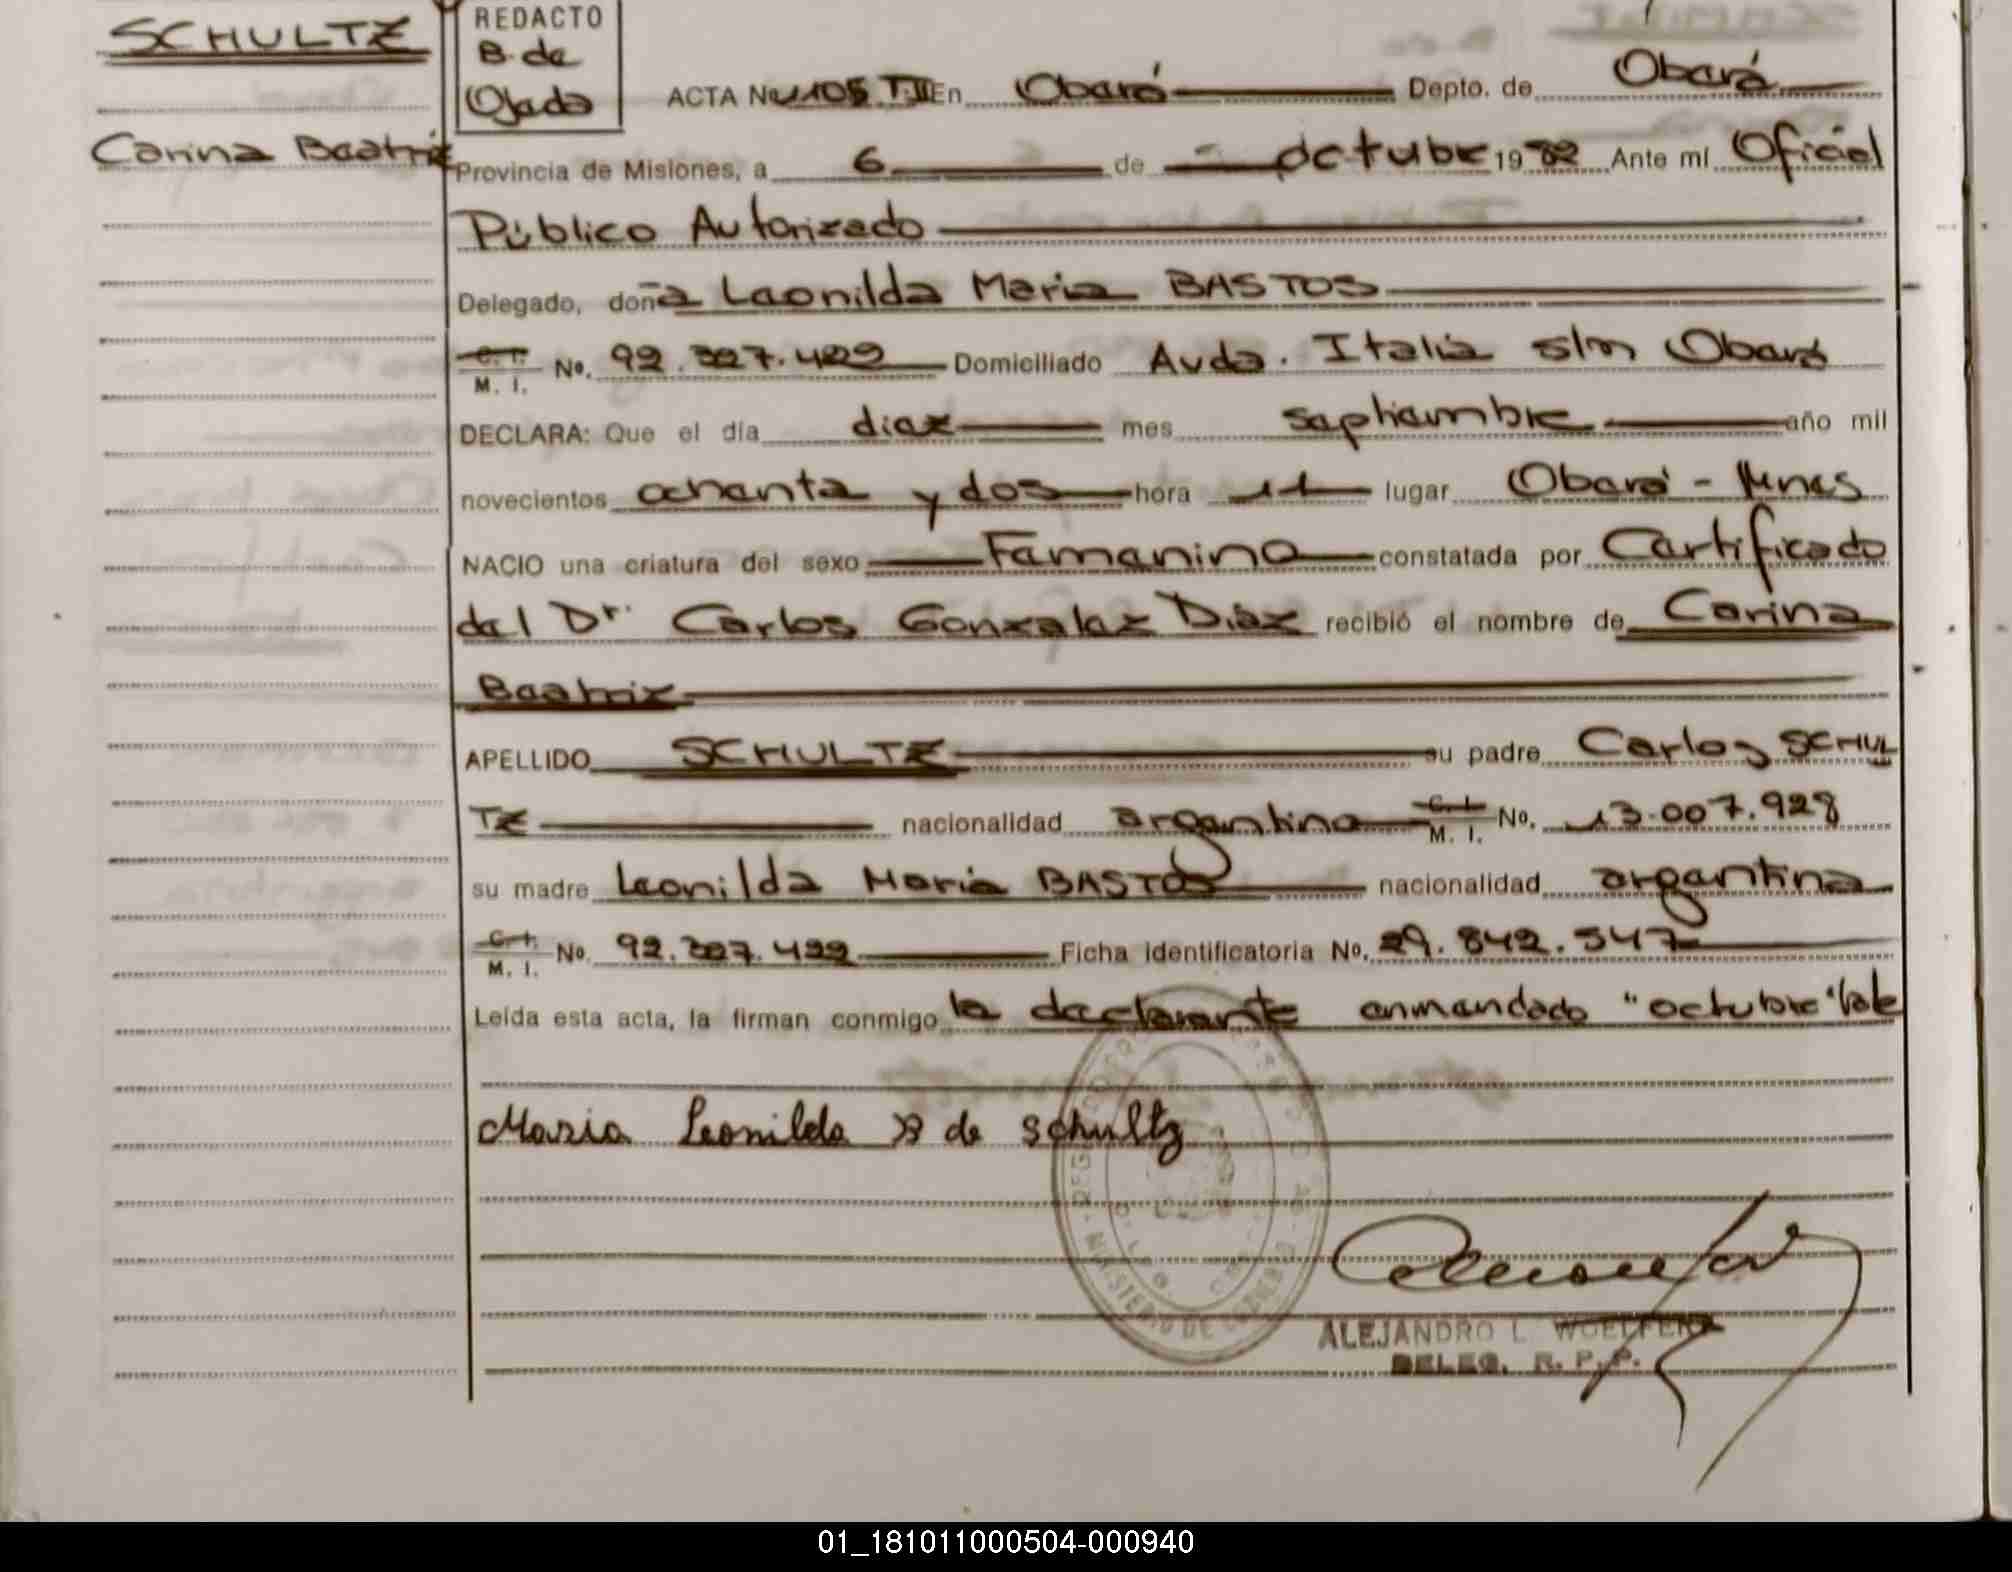 SCHULTZ
Carina Beatriz
REDACTO
B. de
Ojeda
ACTA Nº 1105 T.II En Oberá Depto. de Oberá
Provincia de Misiones, a 6 de octubre 1982 Ante mí Oficial
Público Autorizado
Delegado, doña Leonilda Maria BASTOS
C. I. M. I. No. 92.327.429 Domiciliado Avda. Italia s/n Oberá
DECLARA: Que el día diez mes septiembre año mil
novecientos ochenta y dos hora 11 lugar Oberá - Mnes
NACIO una criatura del sexo Femenino constatada por Certificado
del Dr. Carlos Gonzalez Diaz recibió el nombre de Carina
Beatriz
APELLIDO SCHULTZ su padre Carlos SCHUL
TZ nacionalidad argentina C. I. M. I. No. 13.007.928
su madre Leonilda Maria BASTOS nacionalidad argentina
C. I. M. I. No. 92.327.429 Ficha identificatoria No. 29.842.547
Leída esta acta, la firman conmigo la declarante enmendado "octubre" Vale
Maria Leonilda B de Schultz
MINISTERIO DE GOBIERNO
ALEJANDRO L. WOELFERT
DELEG. R. P. P.
01_181011000504-000940